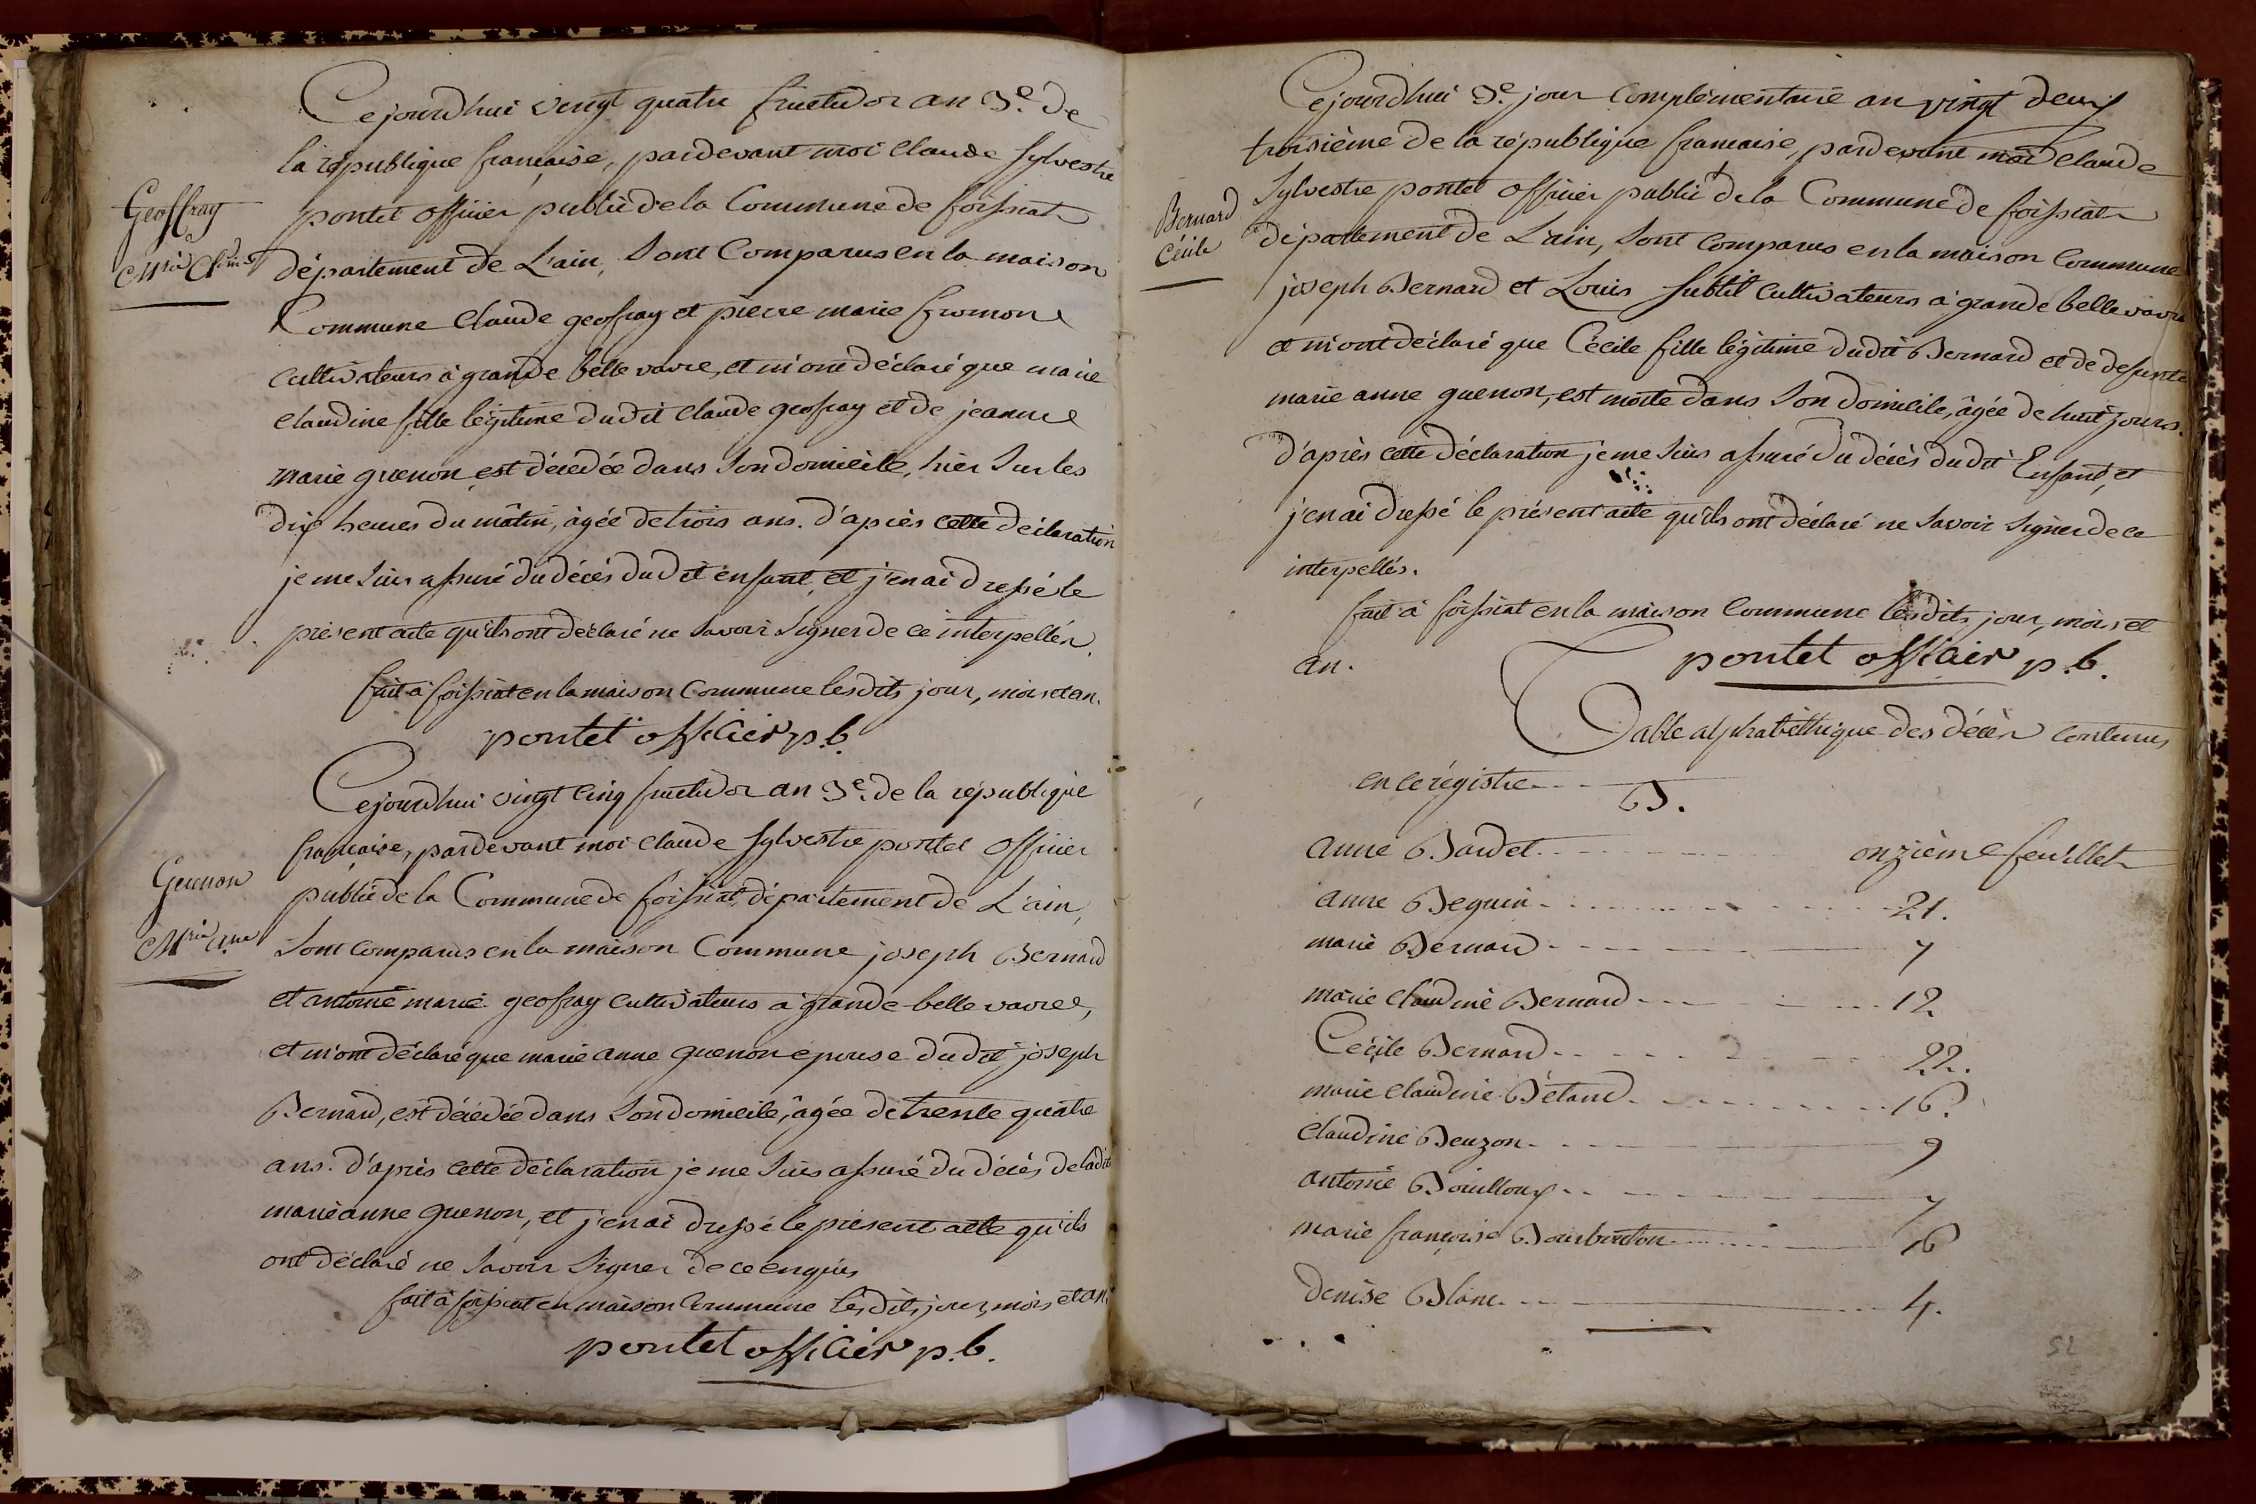 Cejourdhui vingt quatre fructidor an 3e. de
la république française, pardevant moi Claude Sylvestre
Geoffray
pontet officier public de la Commune de foissiat
Mrie Cl.dine
département de L'ain, sont Comparus en la maison
Commune Claude geofray et pierre marie fromont
cultivateurs à grande belle vavre, et m'ont déclaré que marie
claudine fille légitime dudit Claude geofray et de jeanne
marie guenon est décedée dans son domicile, hier sur les
dix heures du mâtin, âgée de trois ans. d'après cette déclaration
je me suis assuré du décès dudit enfant, et j'en ai dressé le
présent acte qu'ils ont déclaré ne savoir signer de ce interpellés.
fait à foissiat en la maison Commune lesdits jour, mois et an.
pontet officier p.b.
Cejourdhui vingt cinq fructidor an 3e. de la république
française, pardevant moi Claude Sylvestre pontet officier
Guenon
public de la Commune de foissiat, département de L'ain,
Mrie Ane
sont comparus en la maison Commune joseph Bernard
et antoine marie geofray cultivateurs à grande belle vavre,
et m'ont déclaré que marie anne guenon epouse dudit joseph
Bernard, est décedée dans son domicile, âgée de trente quatre
ans. d'après cette déclaration je me suis assuré du décès de ladite
marie anne guenon, et j'en ai dressé le présent acte qu'ils
ont déclaré ne savoir signer de ce enquis
fait à foissiat en maison Commune lesdits jour, mois et an.
pontet officier p.b.
Cejourdhui 3e. jour complémentaire an vingt deux
troisième de la république francaise, pardevant moi Claude
Bernard
Sylvestre pontet officier public de la Commune de foissiat
Cécile
département de L'ain, sont comparus en la maison Commune
joseph Bernard et Louis subtil cultivateurs à grande belle vavre
et m'ont déclaré que Cécile fille légitime dudit Bernard et de defunte
marie anne guenon, est morte dans son domicile, âgée de huit jours.
d'après cette déclaration je me suis assuré du décès dudit Enfant, et
j'en ai dressé le présent acte qu'ils ont déclaré ne savoir signer de ce
interpellés.
fait à foissiat en la maison Commune lesdits jour, mois et
an.
pontet officier p.b.
Table alphabéthique des décès contenus
en ce régistre
B.
anne Bardet onzième feuillet
anne Beguin 21.
marie Bernard 7
marie claudine Bernard 12
Cécile Bernard 22.
marie claudine Bétand 16.
claudine Beuzon 9
antoine Bouilloux 7
marie françoise Bourbonton 16
denise Blanc 4.
52